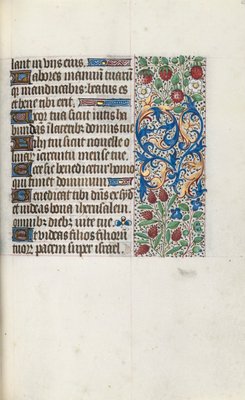 lant in viis eius.
Labores manuu tuaru
qr manducabis: beatus es
et bene tibi erit.
Uxor tua sicut vitis ha
bundas: i laterib; domus tue
Filii tui sicut novelle o
livar: i circuitu mense tue.
Ecce sic benedicetur homo
qui timet dominum.
Benedicat tibi dns ex syo
et videas bona iherusalem
omib; dieb; vite tue.
Et videas filios filioru
tuor pacem super israel.